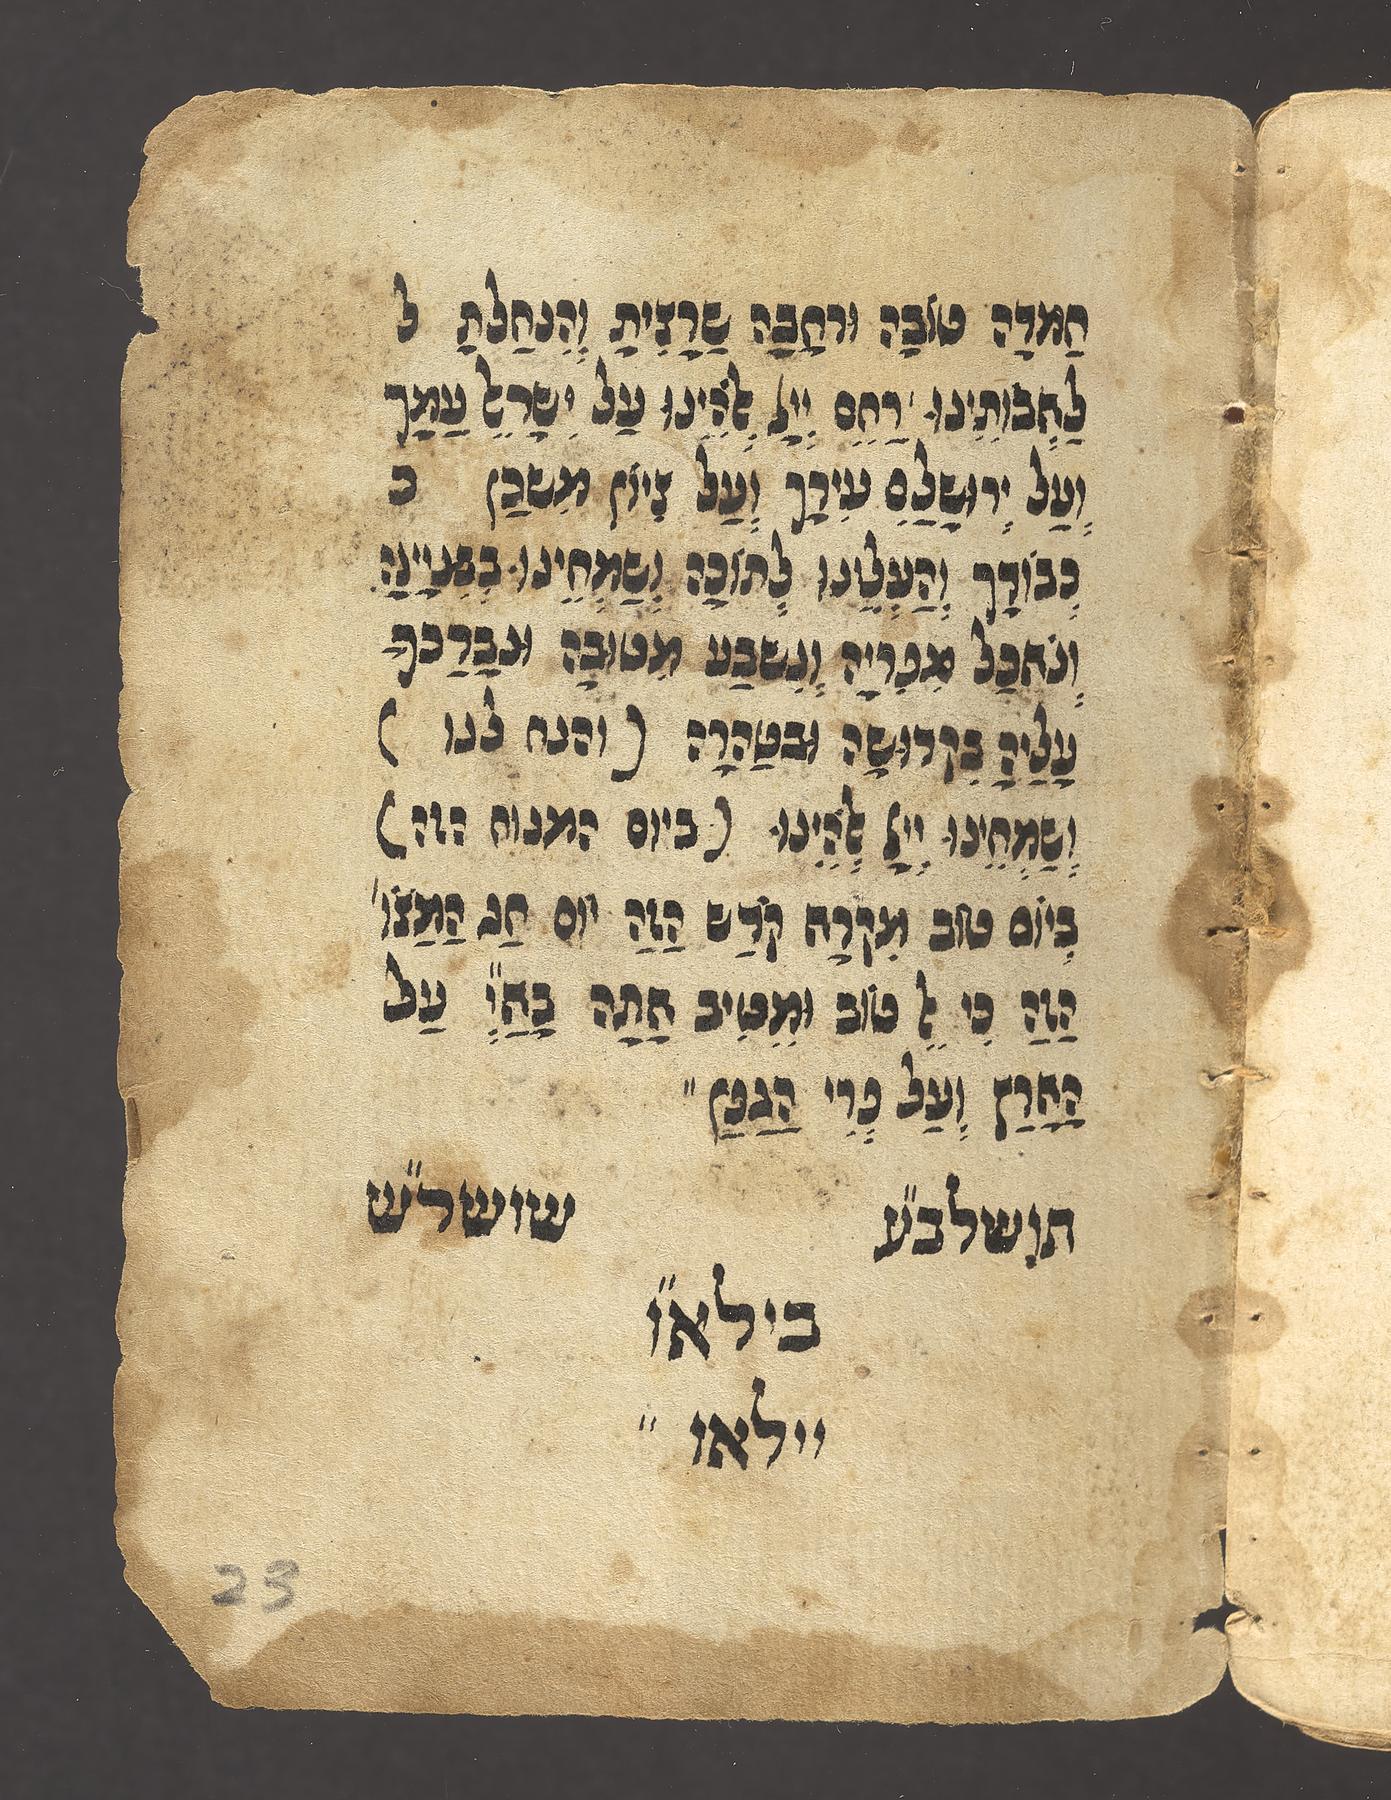 חַמְדָה טוֹבָה ורחָבָה שֶרָצִיתָ וְהִנחַלתָ ל
לַאֲבוֹתֵינוּ רַחֵם יְיָ אֱלֹהֵינוּ עַל יִשרָאֵל עַמָך
וְעַל יְרוּשָלַםִ עִירָך וְעַל צִיוֹן מִשכַן כ
כְבוֹדָך וְהַעֲלֵינוּ לְתוֹכָה וְשַמְחֵינוּ בְבִנְיָינָה
וְנֹאכַל מִפִריָה וְנִשבַע מִטוּבָה וּנבָרַכך
עָלֶיהָ בִקדוּשָה וּבטָהֳרָה (והנח לנו)
וְשַמְחֵינוּ יְיָ אֱלֹהֵינוּ (ביום המנוח הזה)
בְיוֹם טוֹב מִקרָא קֹדֶש הַזֶה יוֹם חַג הַמַצוֹ'
הַזֶה כִי אֵל טוֹב וּמֵטִיב אַתָה בָאַ״יְ עַל
הָאָרֶץ וְעַל פְרִי הַגֶפֶן״
תושלב״ע שושר״ש
בילא״ו
יילאו ״
23